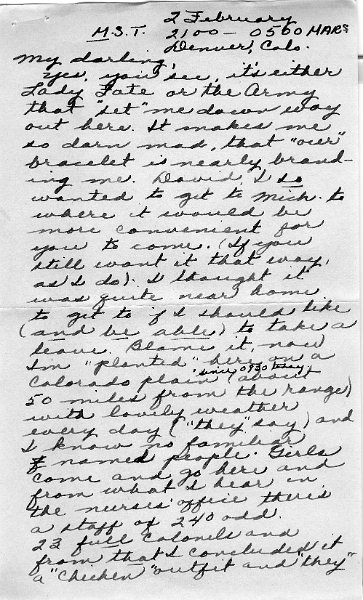 2 February
M.S.T. 2100 - 0500 MARS
Denver, Colo.
My darling,
Yes, you see, it's either
Lady Fate or the Army
that "set" me down way
out here. It makes me
so darn mad, that "our"
bracelet is nearly brand-
ing me. David, I so
wanted to get to Mich. to
where it would be
more convenient for
you to come. (If you
still want it that way,
as I do). I thought it
was quite near home
to get to if I should like
(and be able) to take a
leave. Blame it, now
I'm "planted" here on a
since 0930 they
Colorado plain (about
50 miles from the range)
with lovely weather
every day ("they" say) and
I know no familiar
named people. Girls
come and go here and
from what I hear in
the nurses' office there's
a staff of 240 odd.
23 full Colonels and
from that I concluded it
a "chicken" outfit and "they"